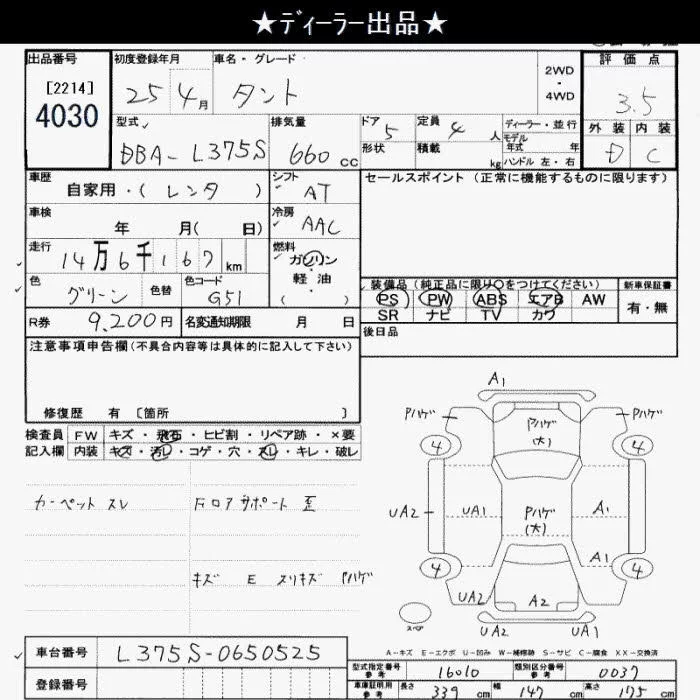 ★ディーラー出品★
出品番号 初度登録年月 車名・グレード 評価点
[2214]
4030
25 4月 タント 2WD・4WD 3.5
型式 排気量 ドア 定員 ディーラー・並行 外装 内装
DBA-L375S 660cc 5 4人 モデル年式 年 D C
形状 積載 kg ハンドル 左・右
車歴 シフト セールスポイント (正常に機能するものに限ります)
自家用・(レンタ) AT
車検 冷房
年 月( 日) AAC
走行 燃料
14万6千167km ガソリン・軽油
( )
色 色替 色コード
グリーン G51
装備品(純正品に限り○をつけてください) 新車保証書
PS PW ABS エアB AW 有・無
SR ナビ TV カワ
R券 9,200円 名変通知期限 月 日 後日品
注意事項申告欄(不具合内容等は具体的に記入して下さい)
修復歴 有 [箇所 ]
検査員 FW キズ・飛石・ヒビ割・リペア跡・×要
記入欄 内装 キズ・汚レ・コゲ・穴・スレ・キレ・破レ
カーペット スレ
フロアサポート 歪
キズ E スリキズ Pハゲ
A1
Pハゲ Pハゲ(大) Pハゲ
4 4
UA2 UA1 Pハゲ(大) A1
A1
4 4
UA2 A2
スペア
UA2 UA1
A-キズ E-エクボ U-凹み W-補修跡 S-サビ C-腐食 XX-交換済
車台番号 L375S-0650525
登録番号
型式指定番号 参考 16010 類別区分番号 参考 0037
車庫証明用 参考 長さ 339cm 幅 147cm 高さ 175cm